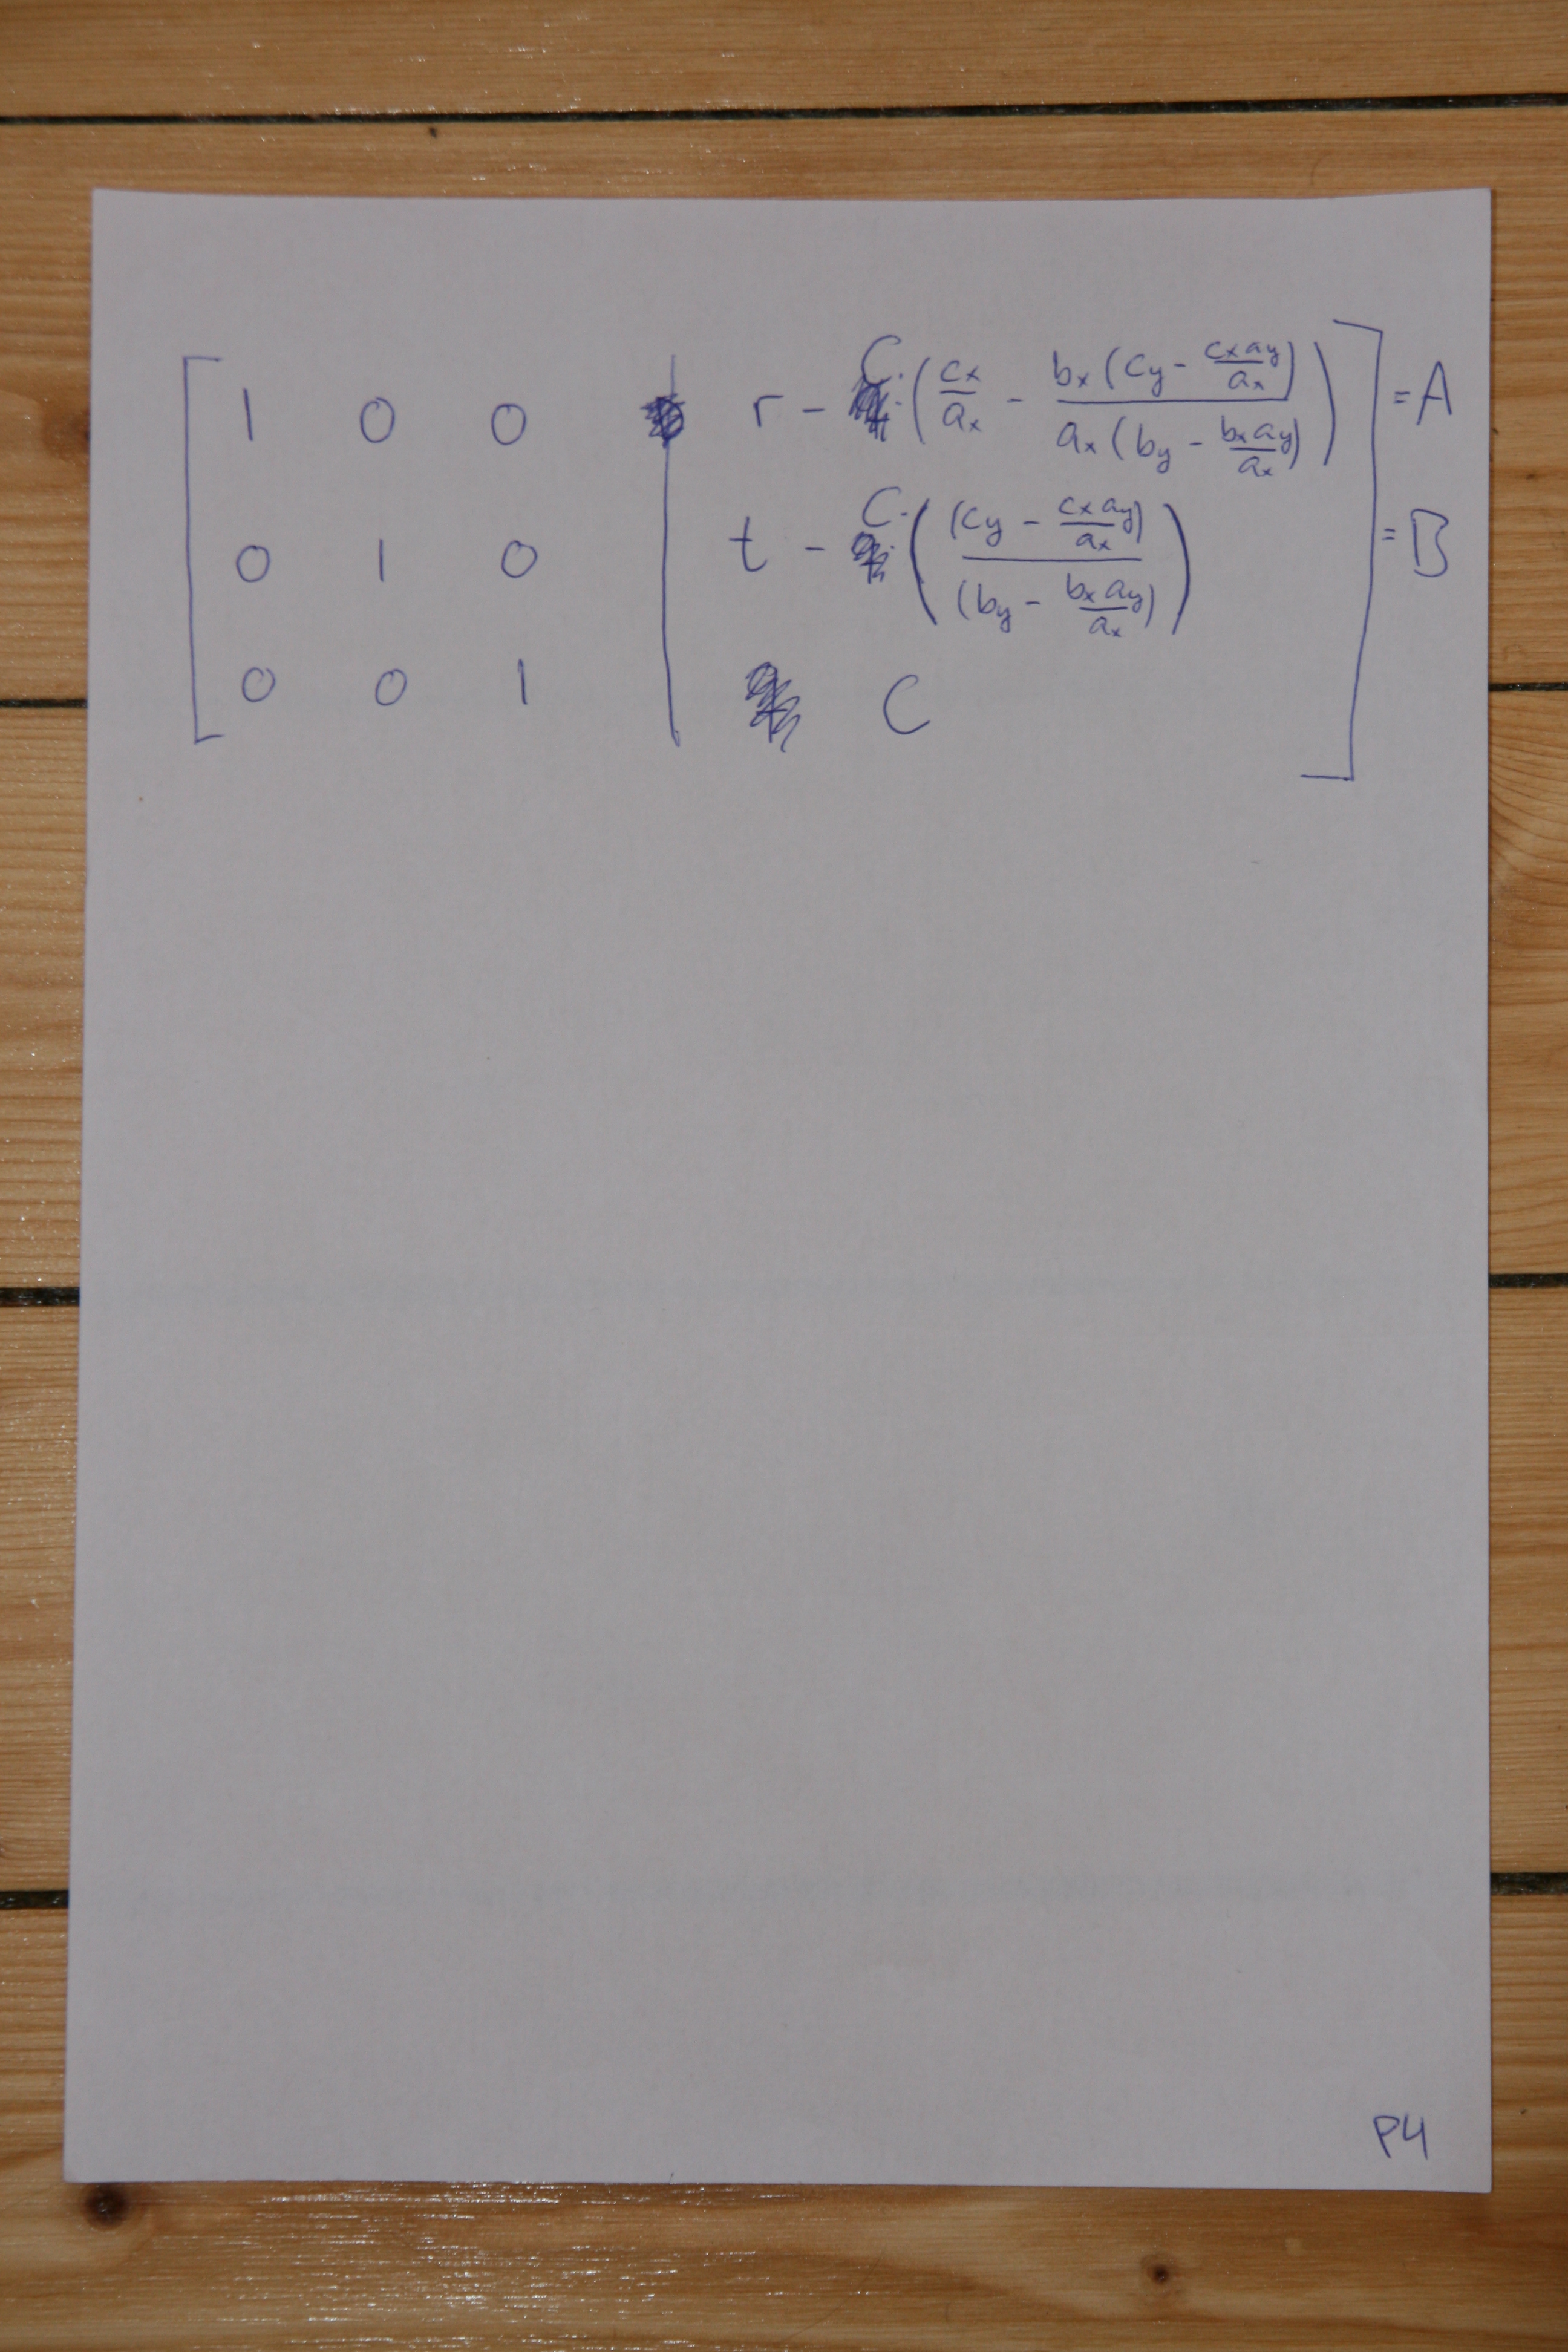 1 0 0 | r - C·(cx/ax - bx(cy - cxay/ax)/ax(by - bxay/ax)) = A
0 1 0 | t - C·((cy - cxay/ax)/(by - bxay/ax)) = B
0 0 1 | C
P4